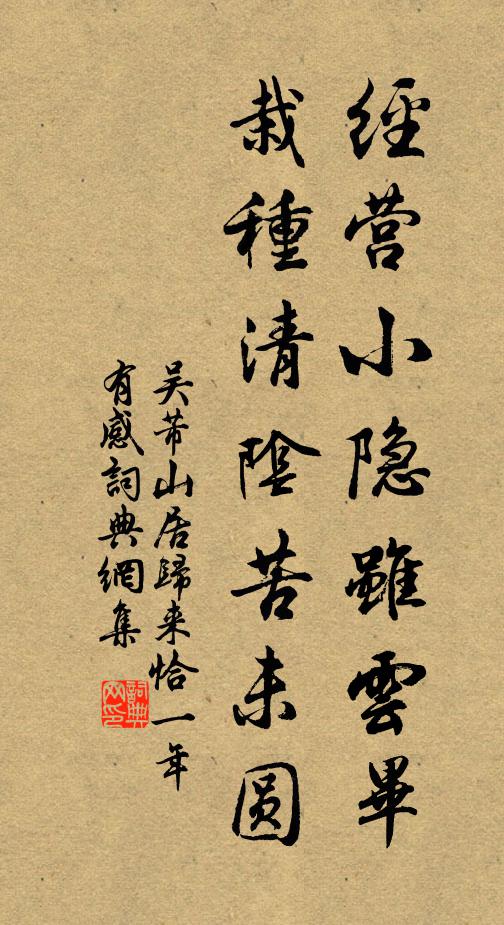 經营小隐雖雲畢
栽種清陰苦未圆
吴芾山居歸来恰一年
有感詞典網集
詞典
网印